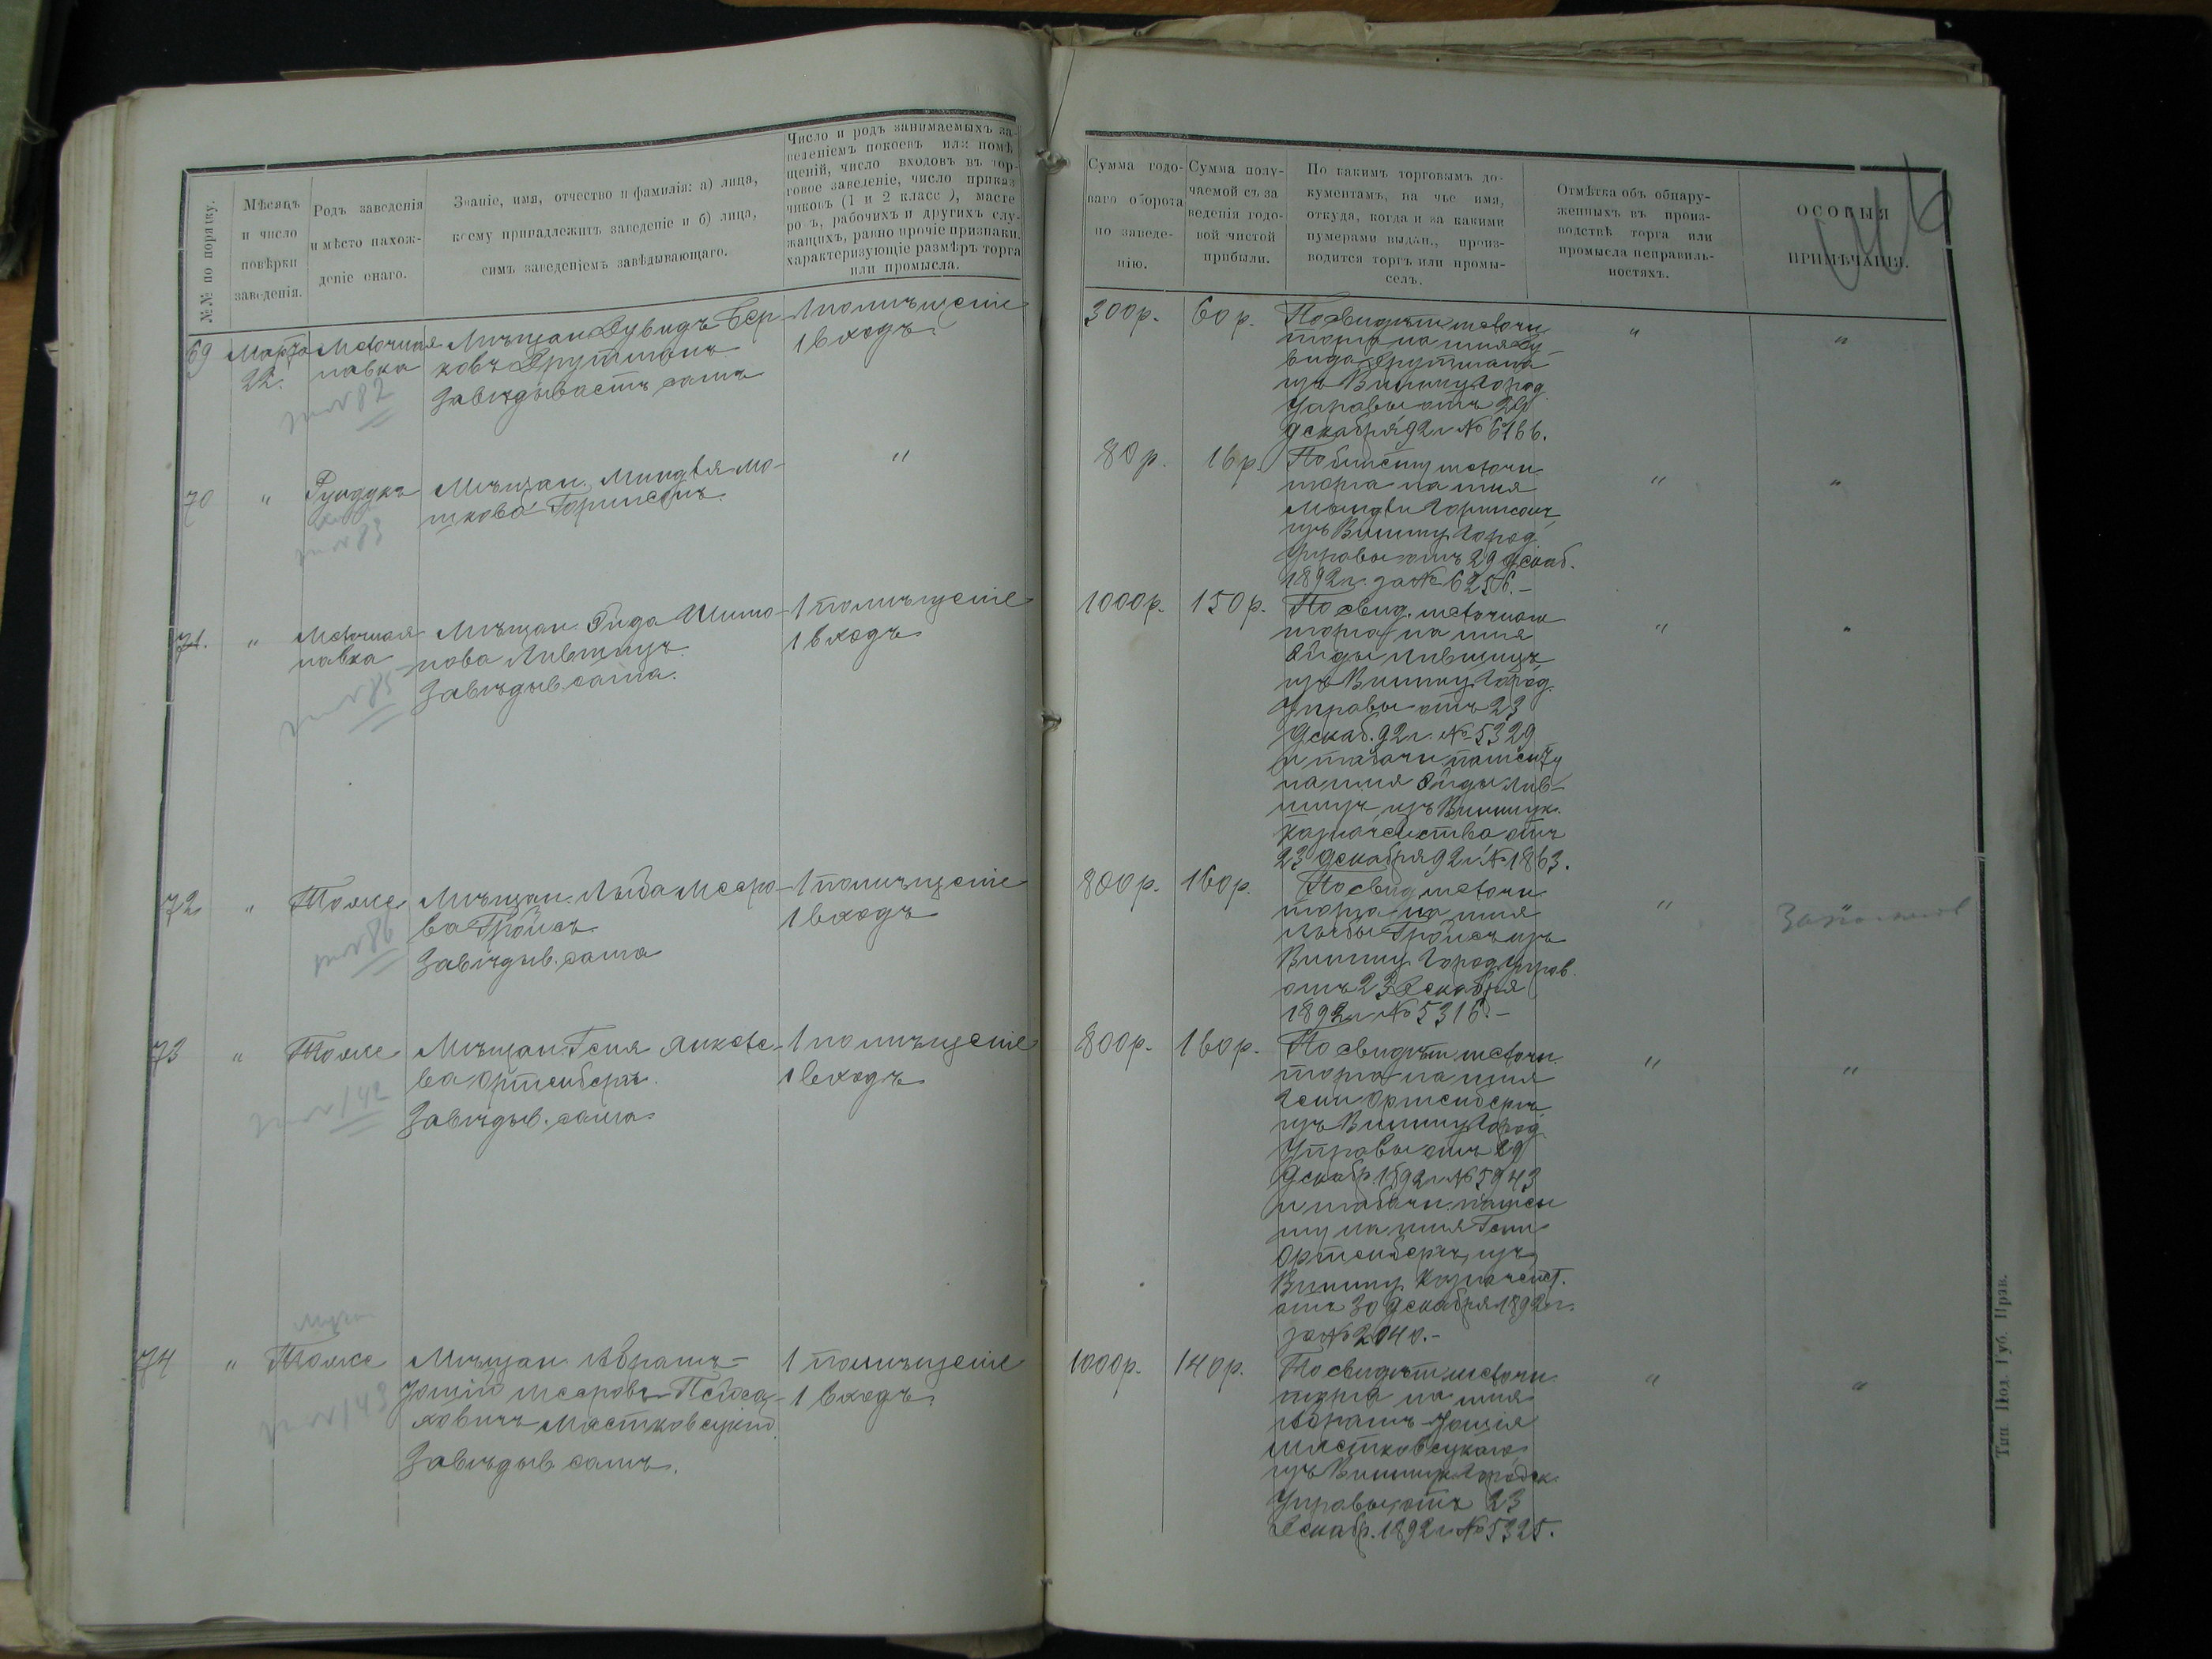 №№ по порядку.
Мѣсяцъ
и число
повѣрки
заведенія.
Родъ заведенія
и мѣсто нахож-
деніе онаго.
Званіе, имя, отчество и фамилія: а) лица,
коему принадлежитъ заведеніе и б) лица,
симъ заведеніемъ завѣдывающаго.
Число и родъ занимаемыхъ за-
веденіемъ покоевъ или помѣ-
щеній, число входовъ въ тор-
говое заведеніе, число приказ-
чиковъ (1 и 2 класс ), масте
ро ъ, рабочихъ и другихъ слу-
жащихъ, равно прочіе признаки,
характеризующіе размѣръ торга
или промысла.
Сумма годо-
ваго оборота
по заведе-
нію.
Сумма полу-
чаемой съ за
веденія годо-
вой чистой
прибыли.
По какимъ торговымъ до-
кументамъ, на чье имя,
откуда, когда и за какими
нумерами выдан., произ-
водится торгъ или промы-
селъ.
Отмѣтка объ обнару-
женныхъ въ произ-
водствѣ торга или
промысла неправиль-
ностяхъ.
ОСОБЫЯ
ПРИМѢЧАНІЯ.
69 Марта 22. Мелочная
лавка
Мѣщан. Дувидъ Бер-
ковъ Друтманъ
Завѣдываетъ самъ
1 помѣщеніе
1 входъ.
300р. 60 р.
По свидѣт. мелочн.
торга на имя Ду-
вида Друтмана
изъ Винниц. Город.
Управы отъ 29
декабря 92 г № 6166.
" "
82
70 " Рундукъ
Мѣщан. Миндля Мо-
шкова
"
80 р. 16 р.
По билету мелочн.
торга на имя
Миндли
изъ Винниц. Город.
Управы отъ 29 декаб.
1892 г. за № 6256.-
" "
83
71. " Мелочная
лавка
Мѣщан. Эйда Шимо-
нова Лившицъ.
Завѣдыв. сама.
1 помѣщеніе
1 входъ
1000р. 150 р.
По свид. мелочнаго
торга на имя
Эйды Лившицъ
изъ Винниц. Город.
Управы отъ 23
декаб. 92 г. № 5329
и табачн. патенту
на имя Эйды Лив-
шицъ изъ Винницк.
казначейства отъ
23 декабря 92 г № 1863.
" "
85
72 " Тоже
Мѣщан. Лыба Мееро-
ва Гройсъ.
Завѣдыв. сама
1 помѣщеніе
1 входъ
800р. 160р.
По свид. мелочн.
торга на имя
Лыбы Гройсъ изъ
Винниц. Город. Управ.
отъ 23 Декабря
1892 г № 5316.-
"
86
73 " Тоже
Мѣщан. Геня Янкеле-
ва Ортенбергъ.
Завѣдыв. сама.
1 помѣщеніе
1 входъ
800р. 160р.
По свидѣт. мелочн.
торга на имя
Гени Ортенбергъ
изъ Винниц. Город.
Управы отъ 29
Декабр. 1892 г № 5943
и табачн. патен-
ту на имя Гени
Ортенбергъ, изъ
Винниц. Казначейст.
отъ 30 декабря 1892 г.
за № 2040.-
" "
142
74 " Тоже
Мѣщан. Абрамъ-
Мееровъ Пейса-
ховичъ Мястковецкій
Завѣдыв. самъ.
1 помѣщеніе
1 входъ.
1000р. 140р.
По свидѣт. мелочн.
торга на имя
Абрамъ-
Мястковецкаго
изъ Винницк. Городск.
Управы отъ 23
Декабр. 1892 г № 5325.
" "
143
Тип. Под. Губ. Прав.